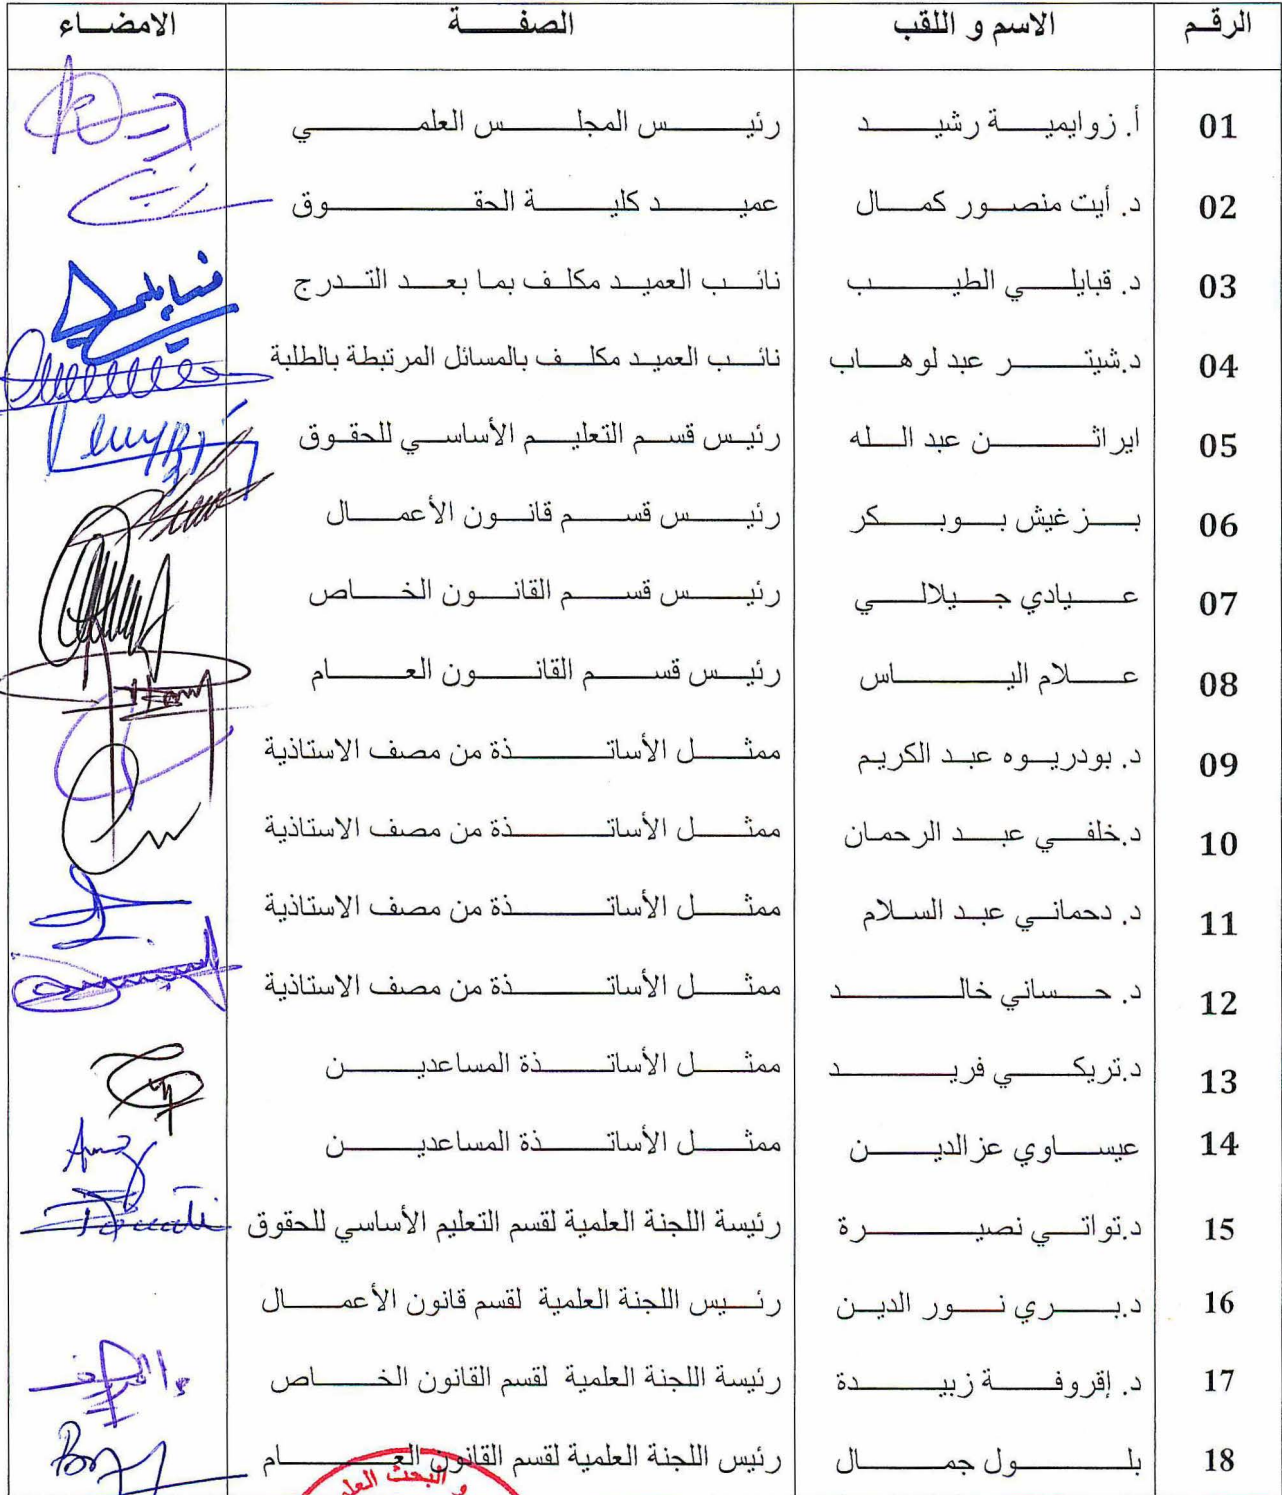 الرقم الاسم و اللقب الصفة الامضاء
01 أ. زوايمية رشيد رئيس المجلس العلمي
02 د. أيت منصور كمال عميد كلية الحقوق
03 د. قبايلي الطيب نائب العميد مكلف بما بعد التدرج
04 د.شيتر عبد لوهاب نائب العميد مكلف بالمسائل المرتبطة بالطلبة
05 ايراثن عبد الله رئيس قسم التعليم الأساسي للحقوق
06 بزغيش بوبكر رئيس قسم قانون الأعمال
07 عيادي جيلالي رئيس قسم القانون الخاص
08 علام الياس رئيس قسم القانون العام
09 د. بودريوه عبد الكريم ممثل الأساتذة من مصف الاستاذية
10 د.خلفي عبد الرحمان ممثل الأساتذة من مصف الاستاذية
11 د. دحماني عبد السلام ممثل الأساتذة من مصف الاستاذية
12 د. حساني خالد ممثل الأساتذة من مصف الاستاذية
13 د.تريكي فريد ممثل الأساتذة المساعدين
14 عيساوي عزالدين ممثل الأساتذة المساعدين
15 د.تواتي نصيرة رئيسة اللجنة العلمية لقسم التعليم الأساسي للحقوق
16 د.بري نور الدين رئيس اللجنة العلمية لقسم قانون الأعمال
17 د. إقروفة زبيدة رئيسة اللجنة العلمية لقسم القانون الخاص
18 بلول جمال رئيس اللجنة العلمية لقسم القانون العام
و البحث